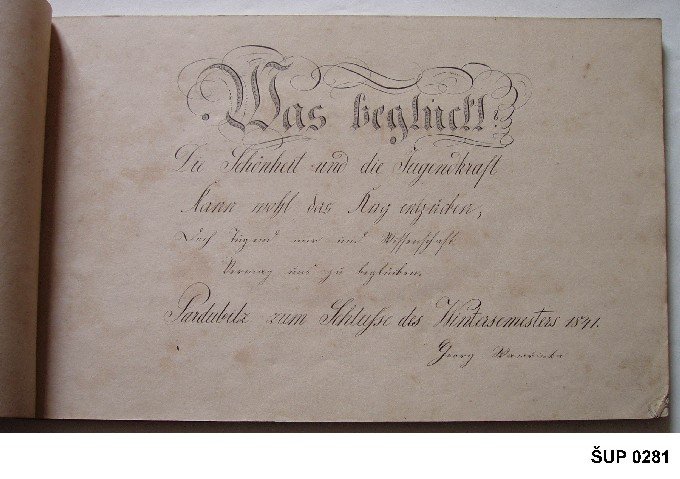 Was beglückt!
Die Schönheit und die Jugendkraft
Kann wohl das Aug entzücken,
Doch Tugend nur und Wissenschaft
Vermag uns zu beglücken.
Pardubitz zum Schluße des Wintersemesters 1841.
Georg
ŠUP 0281